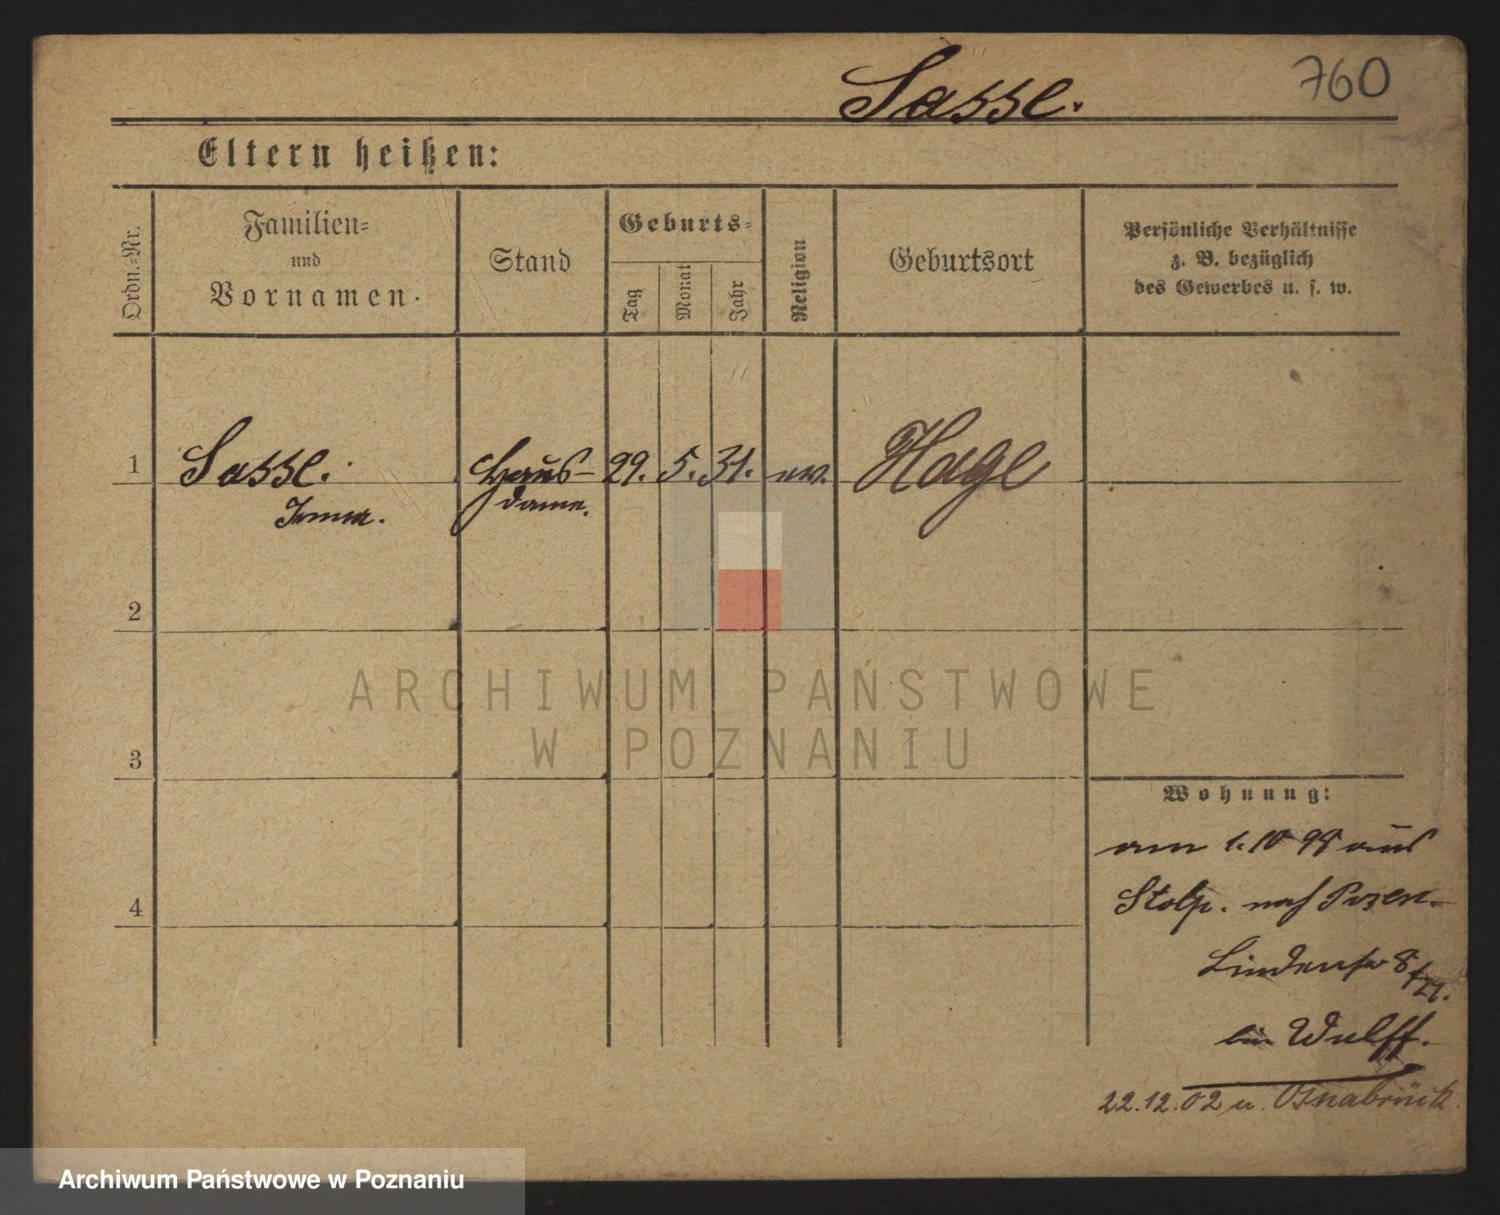 760
Sasse.
Eltern heißen:
Ordn.-Nr.
Familien-
und
Vornamen.
Stand
Geburts-
Tag
Monat
Jahr
Religion
Geburtsort
Persönliche Verhältnisse
z. B. bezüglich
des Gewerbes u. s. w.
1
Sasse.
Haus-
29. 5. 31. ev. Hage
dame.
2
3
4
ARCHIWUM PAŃSTWOWE
W POZNANIU
Wohnung:
am 1.10 98 aus
Stolp. nach Posen.
Lindenstr 8
bei Wulff.
22.12.02 n. Osnabrück
Archiwum Państwowe w Poznaniu